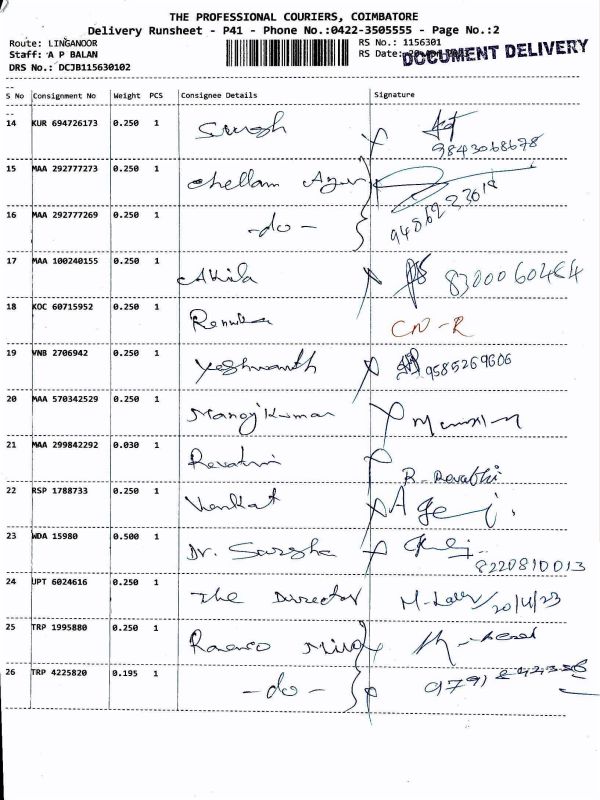 THE PROFESSIONAL COURIERS, COIMBATORE
Delivery Runsheet - P41 - Phone No.:0422-3505555 - Page No.:2
Route: LINGANOOR
Staff: A P BALAN
DRS No.: DCJB115630102
RS No.: 1156301
RS Date:
DOCUMENT DELIVERY
S No Consignment No Weight PCS Consignee Details Signature
14 KUR 694726173 0.250 1 Suresh 9843068678
15 MAA 292777273 0.250 1 Chellam
16 MAA 292777269 0.250 1 -do-
17 MAA 100240155 0.250 1 Akila 8300060464
18 KOC 60715952 0.250 1 Renuka CN-R
19 VNB 2706942 0.250 1 Yeshwanth 9585269606
20 MAA 570342529 0.250 1 Manoj Kumar
21 MAA 299842292 0.030 1 Revathi R-Revathi
22 RSP 1788733 0.250 1 Venkat
23 WDA 15980 0.500 1 Dr. 8220810013
24 UPT 6024616 0.250 1 The Director 20/4/23
25 TRP 1995880 0.250 1
26 TRP 4225820 0.195 1 -do-